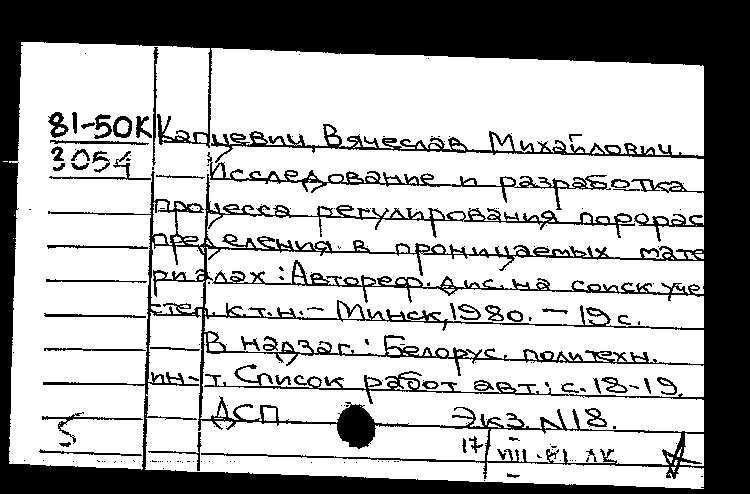 81-50К Капцевич, Вячеслав Михайлович.
3054 Исследование и разработка
процесса регулирования порорас
пределения в проницаемых мате
риалах : Автореф. дис. на соиск. уче
степ. к.т.н. – Минск, 1980. – 19 с.
В надзаг.: Белорус. политехн.
ин-т. Список работ авт.: с. 18-19.
ДСП Экз. N 18.
5 17/VIII-81 ЛК